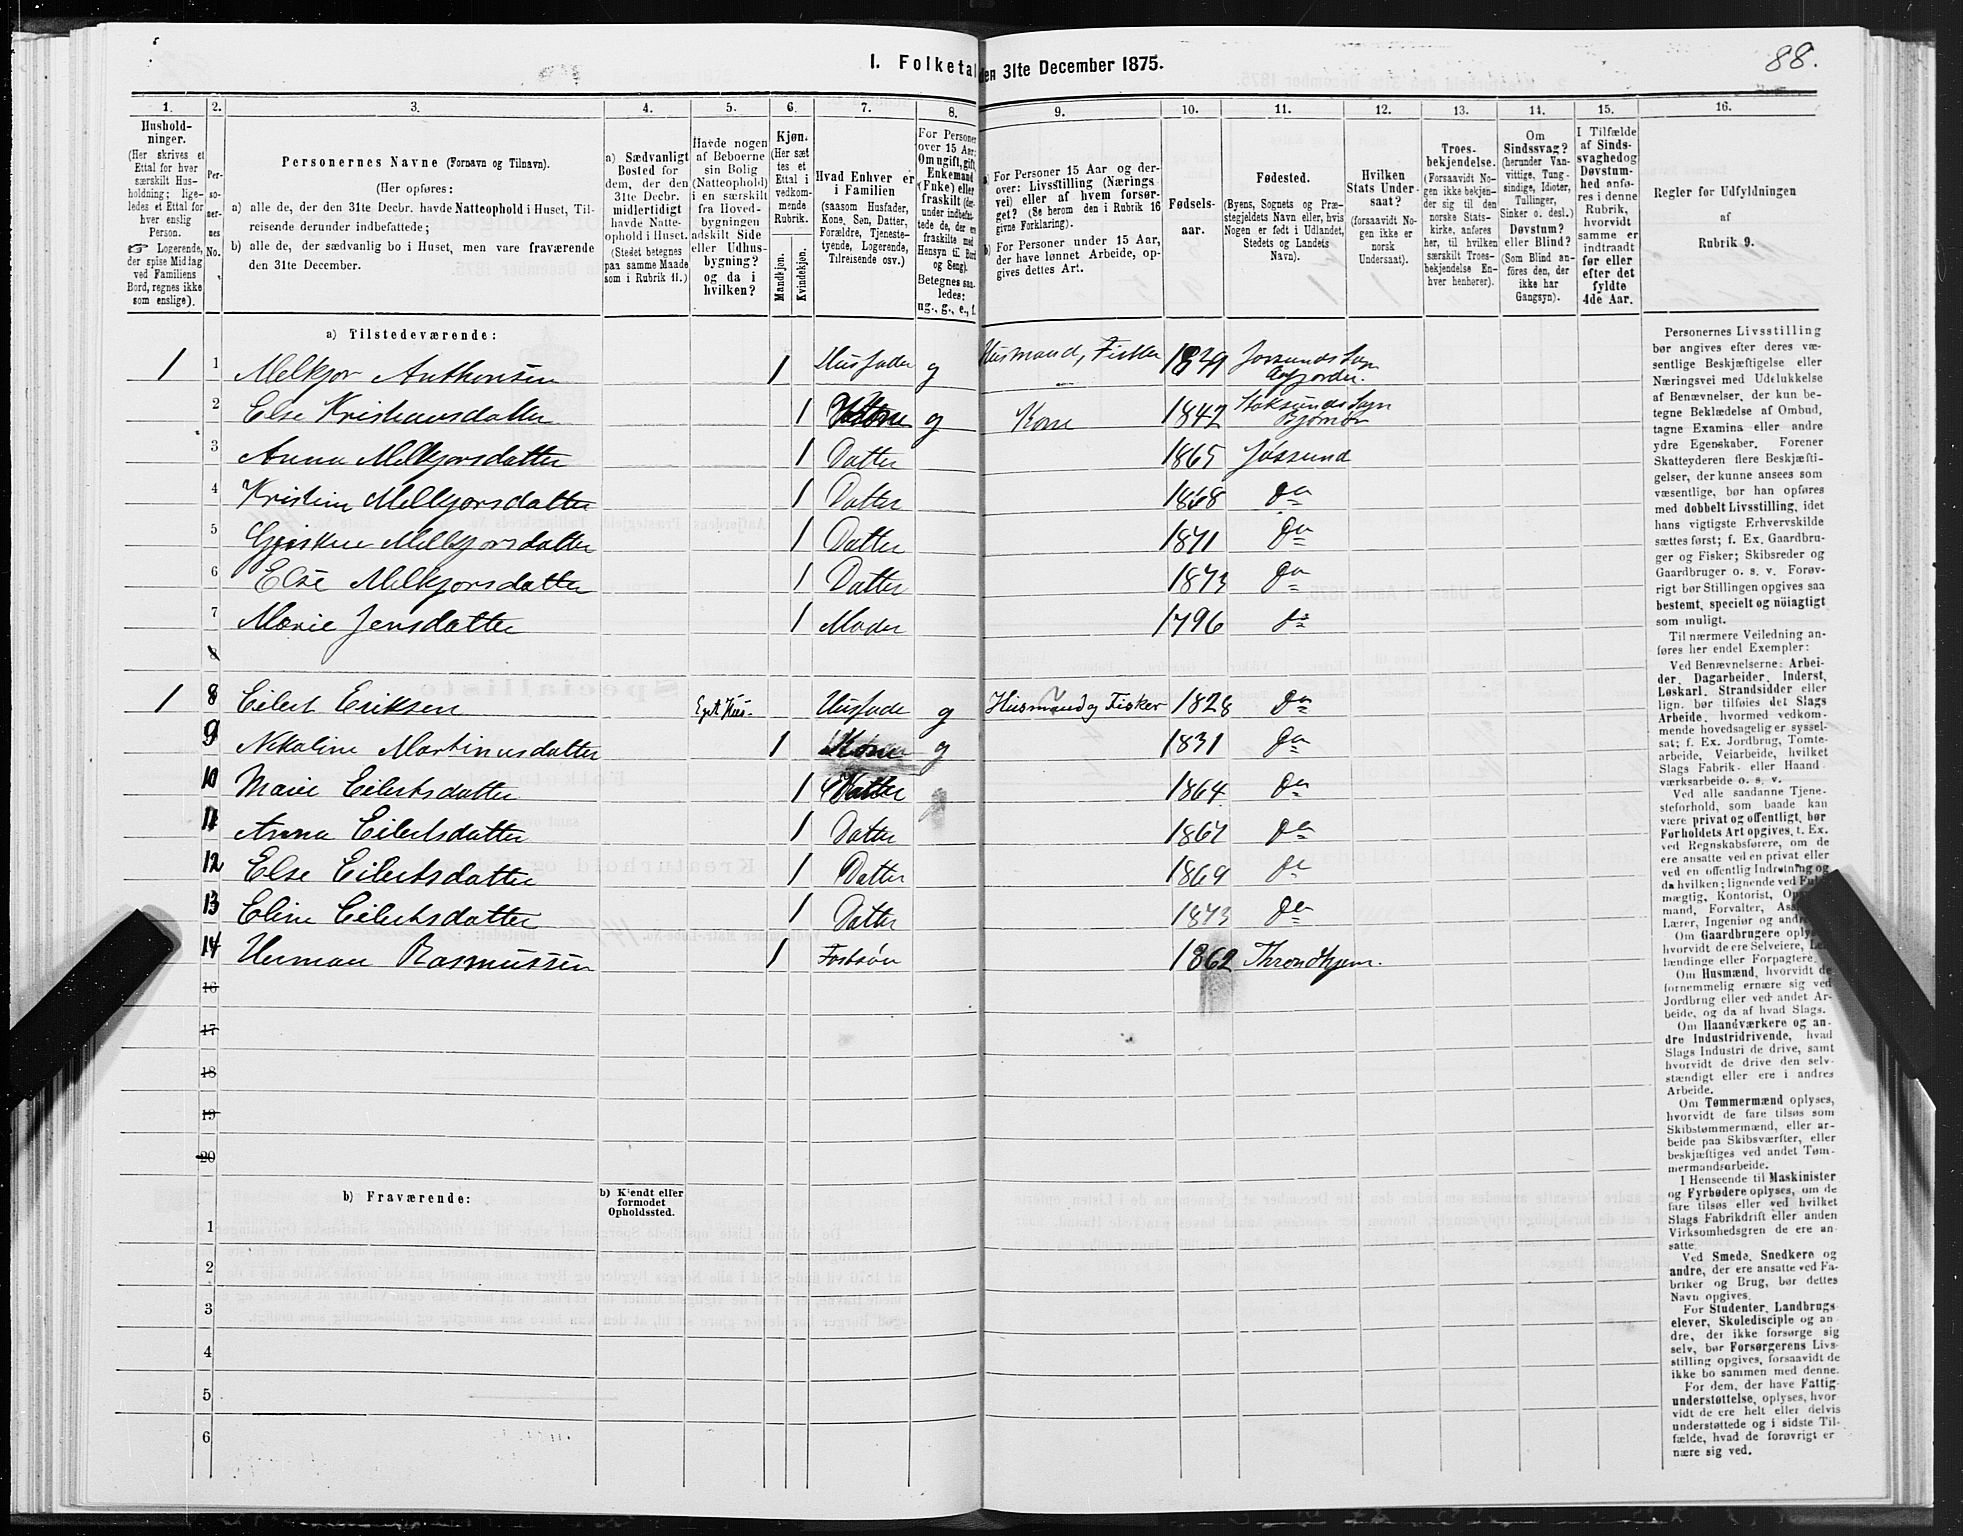 88.
I. Folketal den 31te December 1875.
1. 2. 3. 4. 5. 6. 7. 8. 9. 10. 11. 12. 13. 14. 15. 16.
Husholdninger.
(Her skrives et Ettal for hver særskilt Husholdning; ligeledes et Ettal for hver enslig Person.
☞ Logerende, der spise Middag ved Familiens Bord, regnes ikke som enslige).
Personernes No.
Personernes Navne (Fornavn og Tilnavn).
(Her opføres:
a) alle de, der den 31te Decbr. havde Natteophold i Huset, Tilreisende derunder indbefattede;
b) alle de, der sædvanlig bo i Huset, men vare fraværende den 31te December.
a) Sædvanligt Bosted for dem, der den 31te Decbr. midlertidigt havde Natteophold i Huset. (Stedet betegnes paa samme Maade som i Rubrik 11.)
Havde nogen af Beboerne sin Bolig (Natteophold) i en særskilt fra Hovedbygningen adskilt Side eller Udhusbygning? og da i hvilken?
Kjøn. (Her sættes et Ettal i vedkommende Rubrik.
Mandkjøn. Kvindekjøn.
Hvad Enhver er i Familien (saasom Husfader, Kone, Søn, Datter, Forældre, Tjenestetyende, Logerende, Tilreisende osv.)
For Personer over 15 Aar: Om ugift, gift, Enkemand (Enke) eller fraskilt (derunder indbefattede de, der ere fraskilte med Hensyn til Bord og Seng). Betegnes saaledes: ug., g., e., f.
a) For Personer 15 Aar og derover: Livsstilling (Næringsvei) eller af hvem forsørget? (Se herom den i Rubrik 16 givne Forklaring).
b) For Personer under 15 Aar, der have lønnet Arbeide, opgives dettes Art.
Fødselsaar.
Fødested.
(Byens, Sognets og Præstegjeldets Navn eller, hvis Nogen er født i Udlandet, Stedets og Landets Navn).
Hvilken Stats Undersaat?
(forsaavidt Nogen ikke er norsk Undersaat).
Troesbekjendelse.
(Forsaavidt Nogen ikke bekjender sig til den norske Statskirke, anføres her, til hvilken særskilt Troesbekjendelse Enhver henhører).
Om Sindssvag? (herunder Vanvittige, Tungsindige, Idioter, Tullinger, Sinker o. desl.) Døvstum? eller Blind? (Som Blind anføres den, der ikke har Gangsyn).
I Tilfælde af Sindssvaghed og Døvstumhed anføres i denne Rubrik, hvorvidt samme er indtraadt før eller efter det fyldte 4de Aar.
Regler for Udfyldningen af Rubrik 9.
a) Tilstedeværende:
1 1 Melkjor Anthonsen 1 Husfader g Husmand, Fisker 1829 Jossunds Sogn Aafjorden.
2 Else Kristiansdatter 1 Kone g Kone 1842 Stoksunds Sogn Bjørnør
3 Anna Melkjorsdatter 1 Datter 1865 Jossund
4 Kristine Melkjorsdatter 1 Datter 1868 Do
5 Gjeskne Melkjorsdatter 1 Datter 1871 Do
6 Else Melkjorsdatter 1 Datter 1873 Do
7 Marie Jensdatter 1 Moder 1796 Do
8
1 8 Eilert Eriksen Eget Hus. Husfader g Husmand og Fisker 1828 Do
9 Nikoline Martinusdatter 1 Kone g 1831 Do
10 Marie Eilertsdatter 1 Datter 1864 Do
11 Anna Eilertsdatter 1 Datter 1867 Do
12 Else Eilertsdatter 1 Datter 1869 Do
13 Eline Eilertsdatter 1 Datter 1873 Do
14 Herman Rasmussen 1 Fostsøn 1862 Throndhjem.
16
17
18
19
20
b) Fraværende: b) Kjendt eller formodet Opholdssted.
1
2
3
4
5
6
Personernes Livsstilling bør angives efter deres væsentlige Beskjæftigelse eller Næringsvei med Udelukkelse af Benævnelser, der kun betegne Beklædelse af Ombud, tagne Examina eller andre ydre Egenskaber. Forener Skatteyderen flere Beskjæftigelser, der kunne ansees som væsentlige, bør han opføres med dobbelt Livsstilling, idet hans vigtigste Erhvervskilde sættes først; f. Ex. Gaardbruger og Fisker; Skibsreder og Gaardbruger o. s. v. Forøvrigt bør Stillingen opgives saa bestemt, specielt og nöiagtigt som muligt.
Til nærmere Veiledning anføres her endel Exempler:
Ved Benævnelserne: Arbeider, Dagarbeider, Inderst, Løskarl, Strandsidder eller lign. bør tilføies det Slags Arbeide, hvormed vedkommende hovedsagelig er sysselsat; f. Ex. Jordbrug, Tomtearbeide, Veiarbeide, hvilket Slags Fabrik- eller Haandværksarbeide o. s. v.
Ved alle saadanne Tjenesteforhold, som baade kan være privat og offentligt, bør Forholdets Art opgives, t. Ex. ved Regnskabsførere, om de ere ansatte ved en privat eller ved en offentlig Indretning og da hvilken; lignende ved Fuldmægtig, Kontorist, Op
mand, Forvalter, Ass
Lærer, Ingeniør og andre
Om Gaardbrugere oplyses, hvorvidt de ere Selveiere, Leilændinge eller Forpagtere.
Om Husmænd, hvorvidt de fornemmelig ernære sig ved Jordbrug eller ved andet Arbeide, og da af hvad Slags.
Om Haandværkere og andre Industridrivende, hvad Slags Industri de drive, samt hvorvidt de drive den selvstændigt eller ere i andres Arbeide.
Om Tømmermænd oplyses, hvorvidt de fare tilsøs som Skibstømmermænd, eller arbeide paa Skibsværfter, eller beskjæftiges ved andet Tømmermandsarbeide.
I Henseende til Maskinister og Fyrbødere oplyses, om de fare tilsøs eller ved hvilket Slags Fabrikdrift eller anden Virksomhedsgren de ere ansatte.
Ved Smede, Snedkere og andre, der ere ansatte ved Fabriker og Brug, bør dettes Navn opgives.
For Studenter, Landbrugselever, Skoledisciple og andre, der ikke forsørge sig selv, bør Forsørgerens Livsstilling opgives, forsaavidt de ikke bo sammen med denne.
For dem, der have Fattigunderstøttelse, oplyses, hvorvidt de ere helt eller delvis understøttede og i sidste Tilfælde, hvad de forøvrigt ernære sig ved.